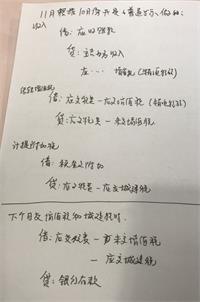 11月根据10月的开票(普通发票)做的:
收入
借: 应收账款
贷: 主营业务收入
应…
结转增值税
借: 应交税费—应交增值税
贷: 应交税费—未交增值税
计提附加税
借: 税金及附加
贷: 应交税费—应交城建税
下个月交增值税和城建税时.
借: 应交税费—未交增值税
—应交城建税
贷: 银行存款